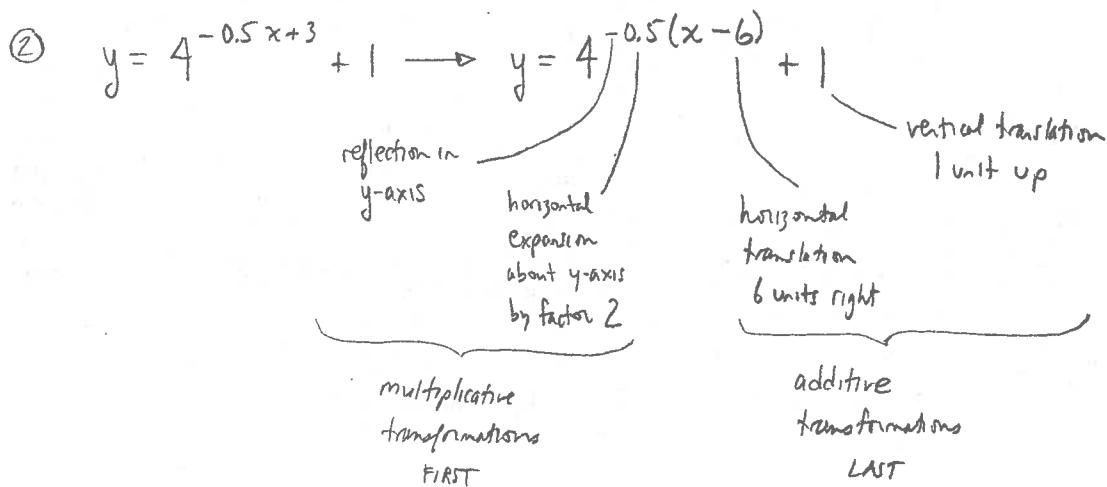 ② y = 4^{-0.5x+3} + 1 → y = 4^{-0.5(x-6)} + 1
reflection in
y-axis
horizontal
expansion
about y-axis
by factor 2
horizontal
translation
6 units right
vertical translation
1 unit up
multiplicative
transformations
FIRST
additive
transformations
LAST